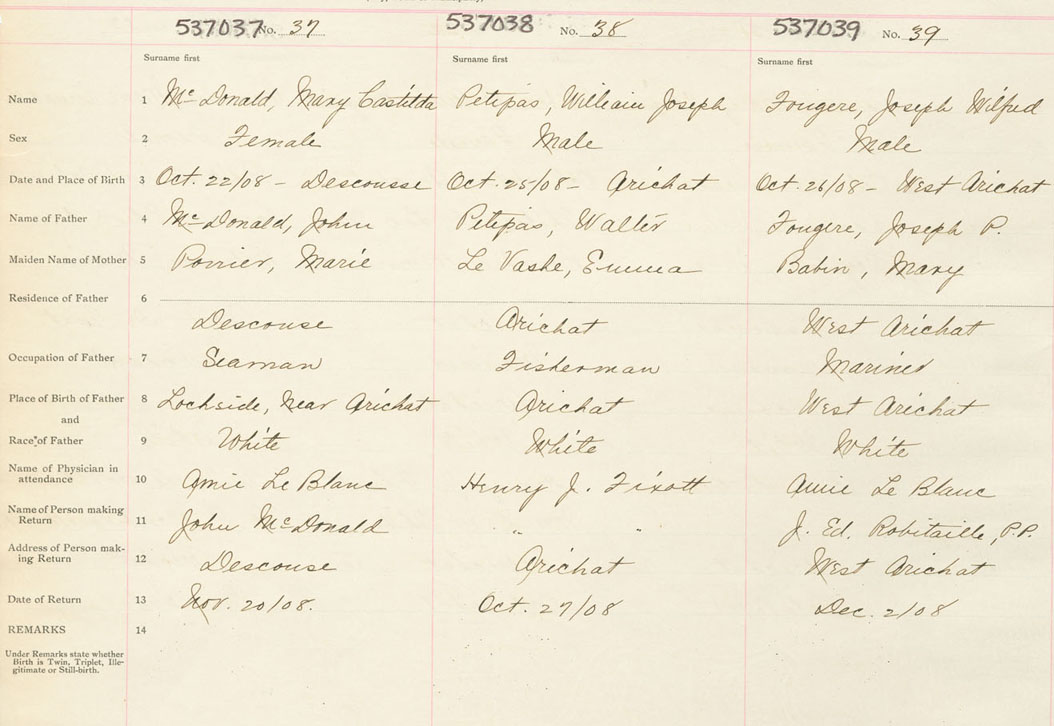 537037 No. 37 537038 No. 38 537039 No. 39
Surname first Surname first Surname first
Name 1 Mc Donald, Mary Castilda Petipas, William Joseph Fougere, Joseph Wilfred
Sex 2 Female Male Male
Date and Place of Birth 3 Oct. 22/08 - Descousse Oct. 25/08 - Arichat Oct. 26/08 - West Arichat
Name of Father 4 Mc Donald, John Petipas, Walter Fougere, Joseph P.
Maiden Name of Mother 5 Poirier, Marie Le Vashe, Emma Babin, Mary
Residence of Father 6
Descouse Arichat West Arichat
Occupation of Father 7 Seaman Fisherman Mariner
Place of Birth of Father 8 Lochside, Near Arichat Arichat West Arichat
and
Race of Father 9 White White White
Name of Physician in
attendance 10 Amie Le Blanc Henry J. Fixott Amie Le Blanc
Name of Person making
Return 11 John McDonald " " J. Ed. Robitaille, P.P.
Address of Person mak-
ing Return 12 Descouse Arichat West Arichat
Date of Return 13 Nov. 20/08. Oct. 27/08 Dec. 2/08
REMARKS 14
Under Remarks state whether
Birth is Twin, Triplet, Ille-
gitimate or Still-birth.